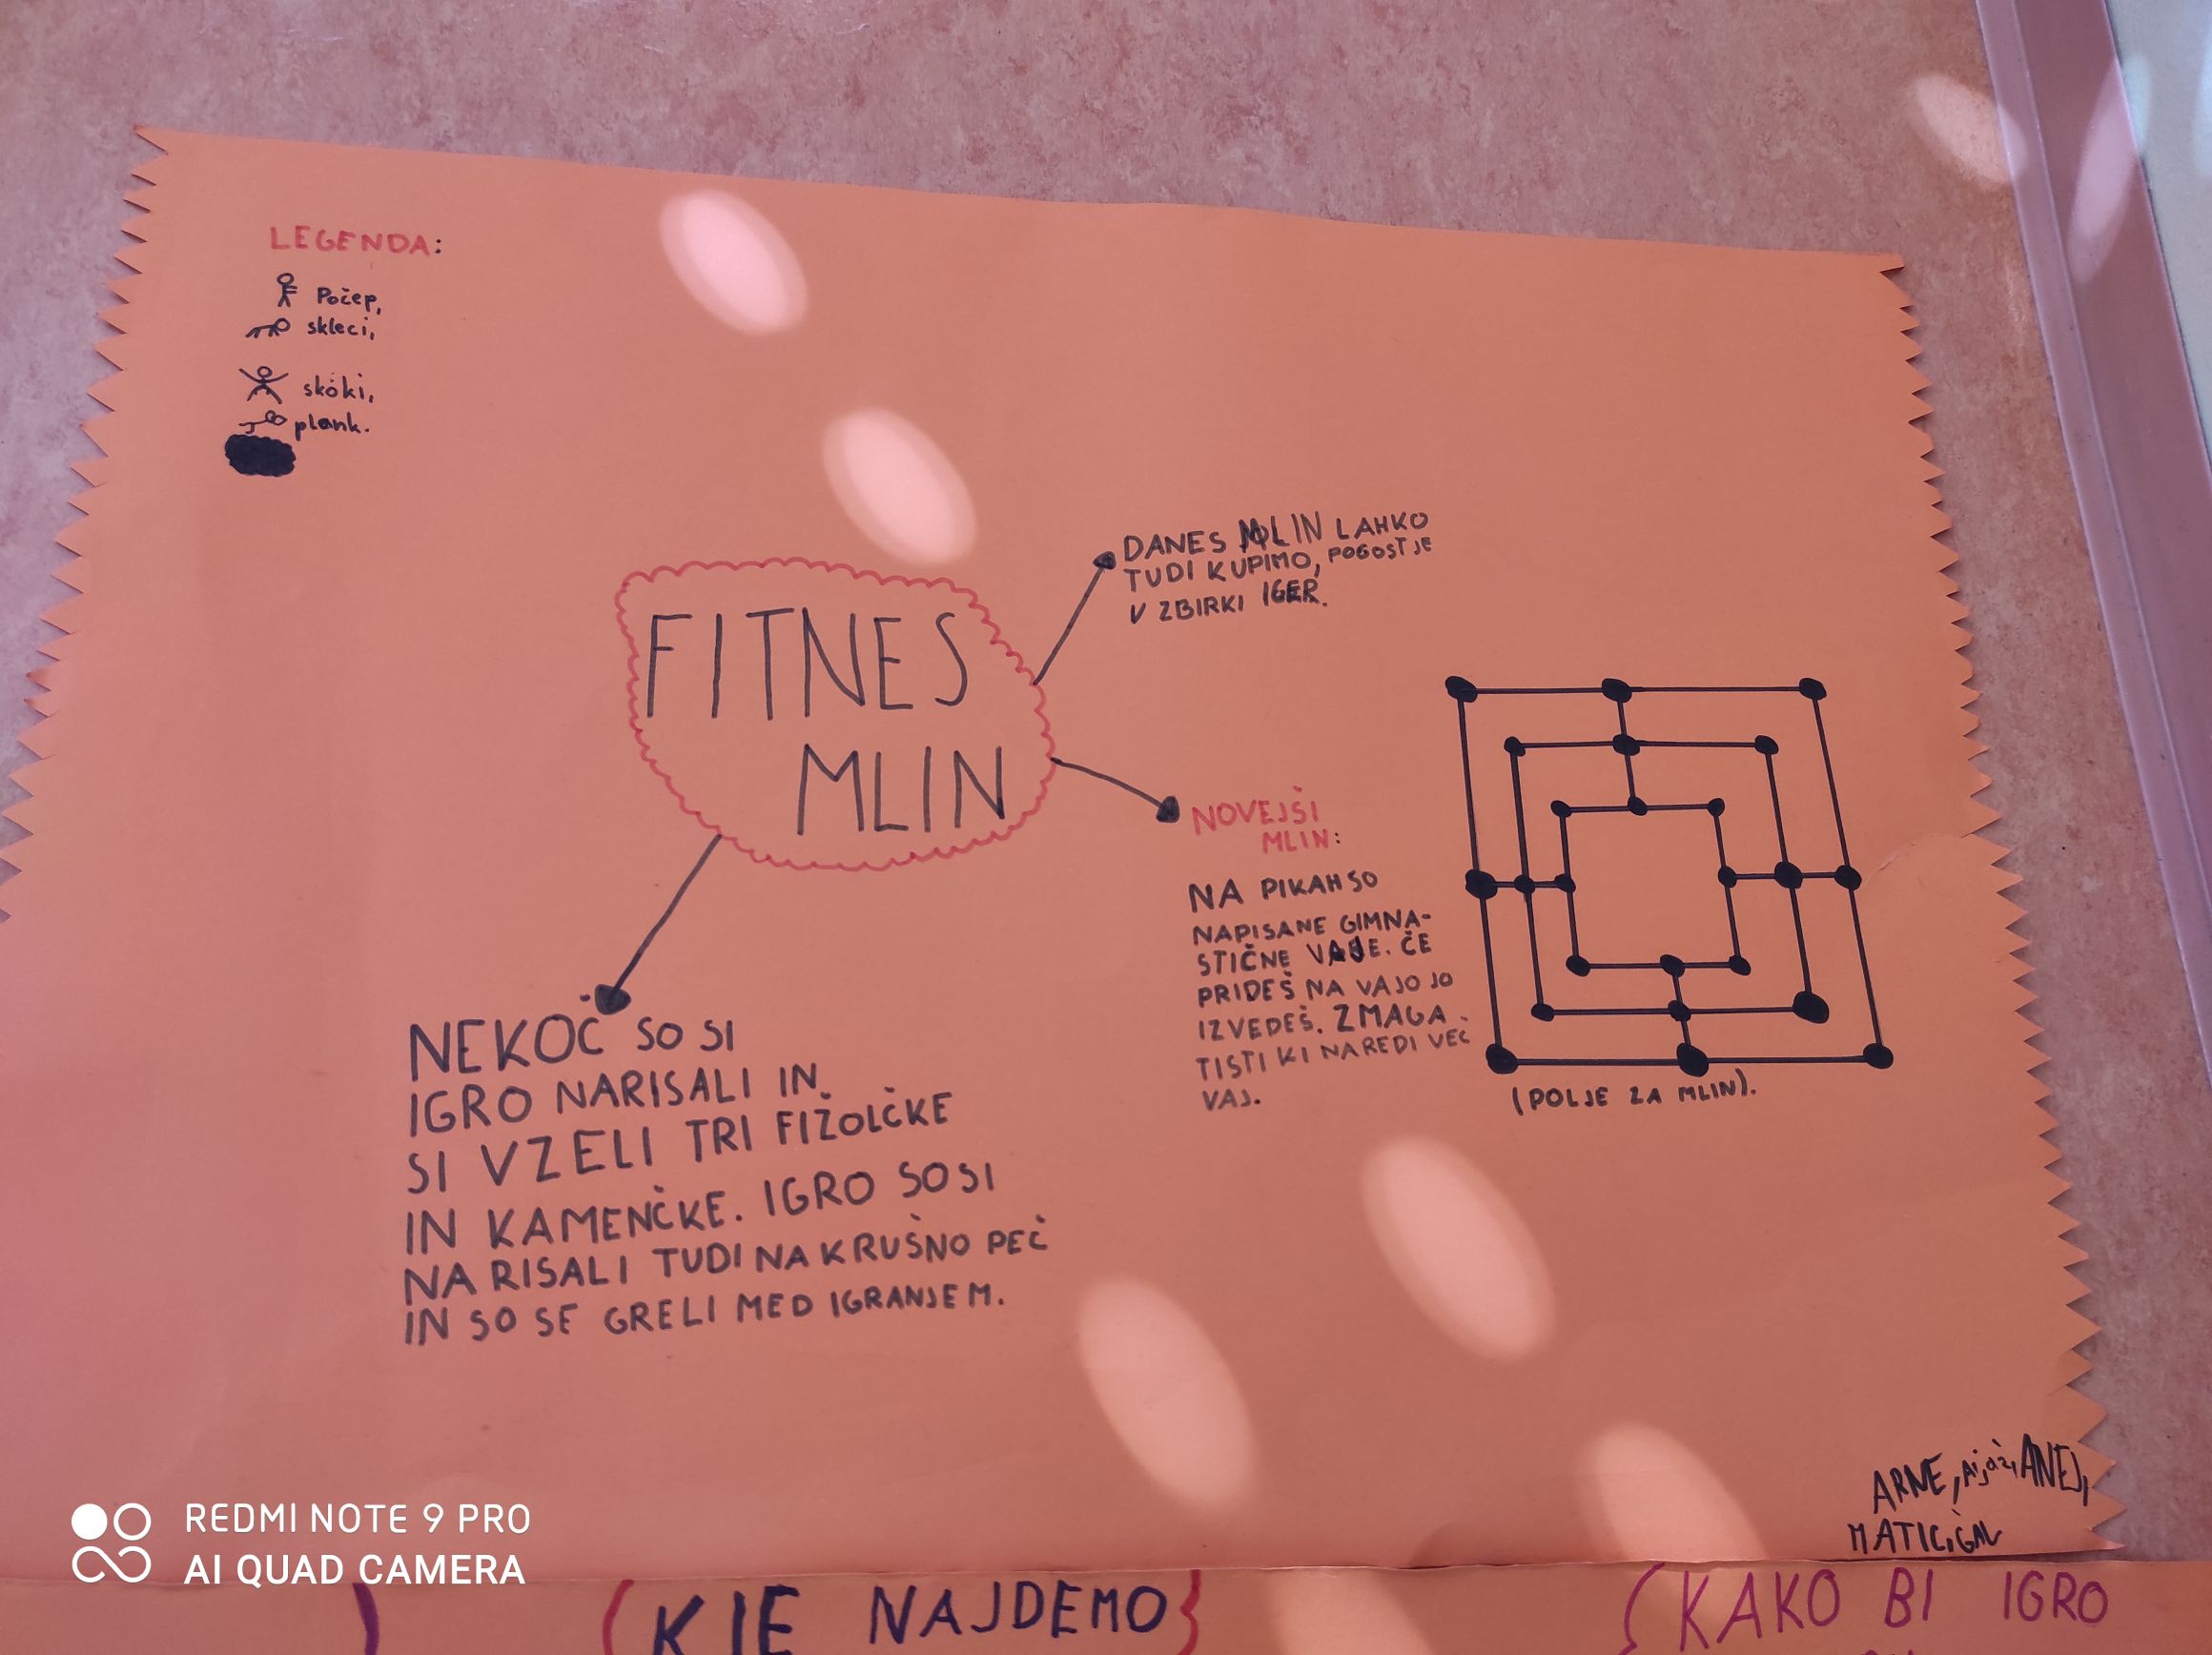 LEGENDA:
Počep,
skleci,
skoki,
plank.
FITNES
MLIN
DANES MLIN LAHKO
TUDI KUPIMO, POGOST JE
V ZBIRKI IGER.
NOVEJŠI
MLIN:
NA PIKAH SO
NAPISANE GIMNA-
STIČNE VAJE. ČE
PRIDEŠ NA VAJO JO
IZVEDEŠ. ZMAGA
TISTI KI NAREDI VEČ
VAJ.
(POLJE ZA MLIN).
NEKOČ SO SI
IGRO NARISALI IN
SI VZELI TRI FIŽOLČKE
IN KAMENČKE. IGRO SO SI
NARISALI TUDI NA KRUŠNO PEČ
IN SO SE GRELI MED IGRANJEM.
ARNE, Ajaž, ANEJ,
MATIC, GAL
REDMI NOTE 9 PRO
AI QUAD CAMERA
KJE NAJDEMO
KAKO BI IGRO